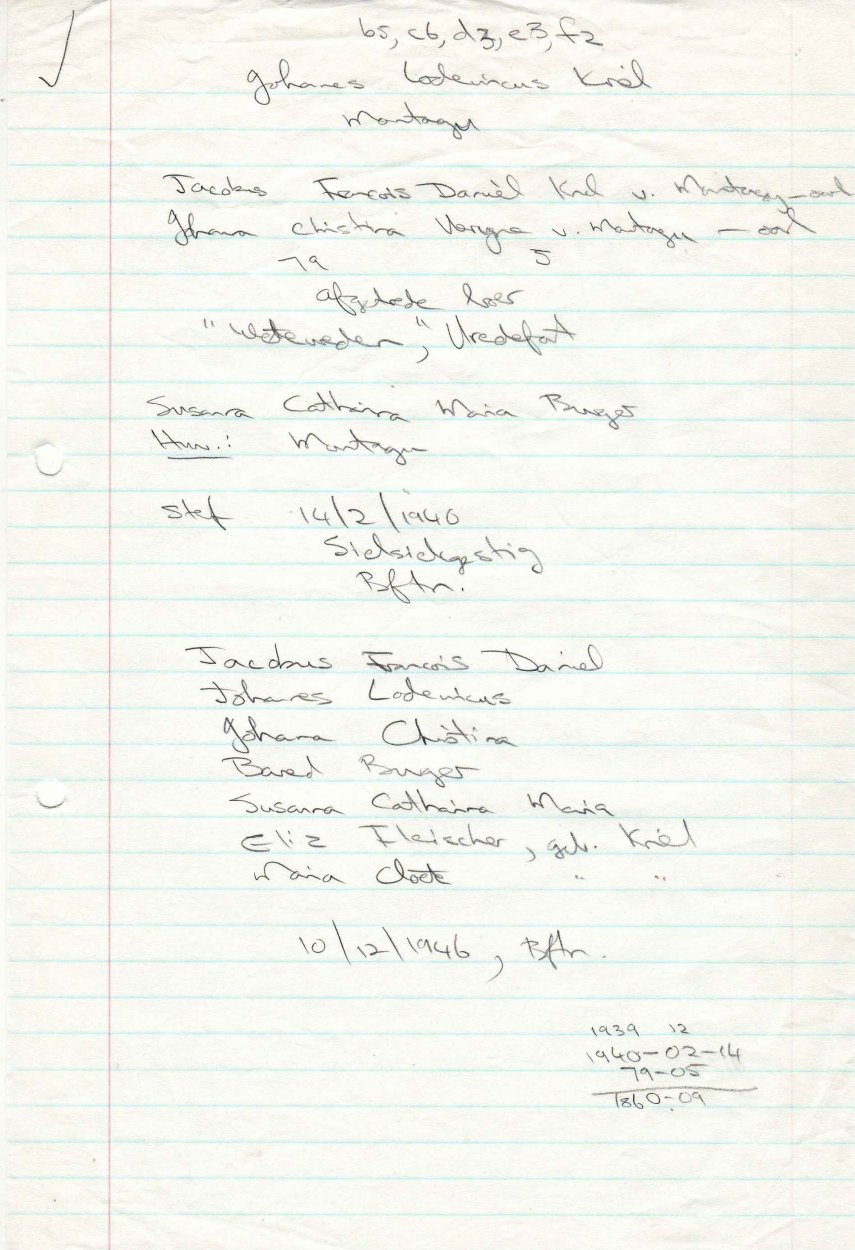 b5, c6, d3, e3, f2
Johanes Lodewicus Kriël
Montagu
Jacobus Francois Daniël Kriel v. Montagu – oorl
Johana Christina v. Montagu – oorl
79 5
afgetrede boer
" ", Vredefort
Susanna Catharina Maria Burger
Huw.: Montagu
Sterf 14/2/1940
Sielsiekgestig
Bftn.
Jacobus Francois Daniel
Johanes Lodewicus
Johana Christina
Barend Burger
Susanna Catharina Maria
Eliz Fleischer, geb. Kriël
Maria Cloete " "
10/12/1946, Bftn.
1939 12
1940-02-14
79-05
1860-09